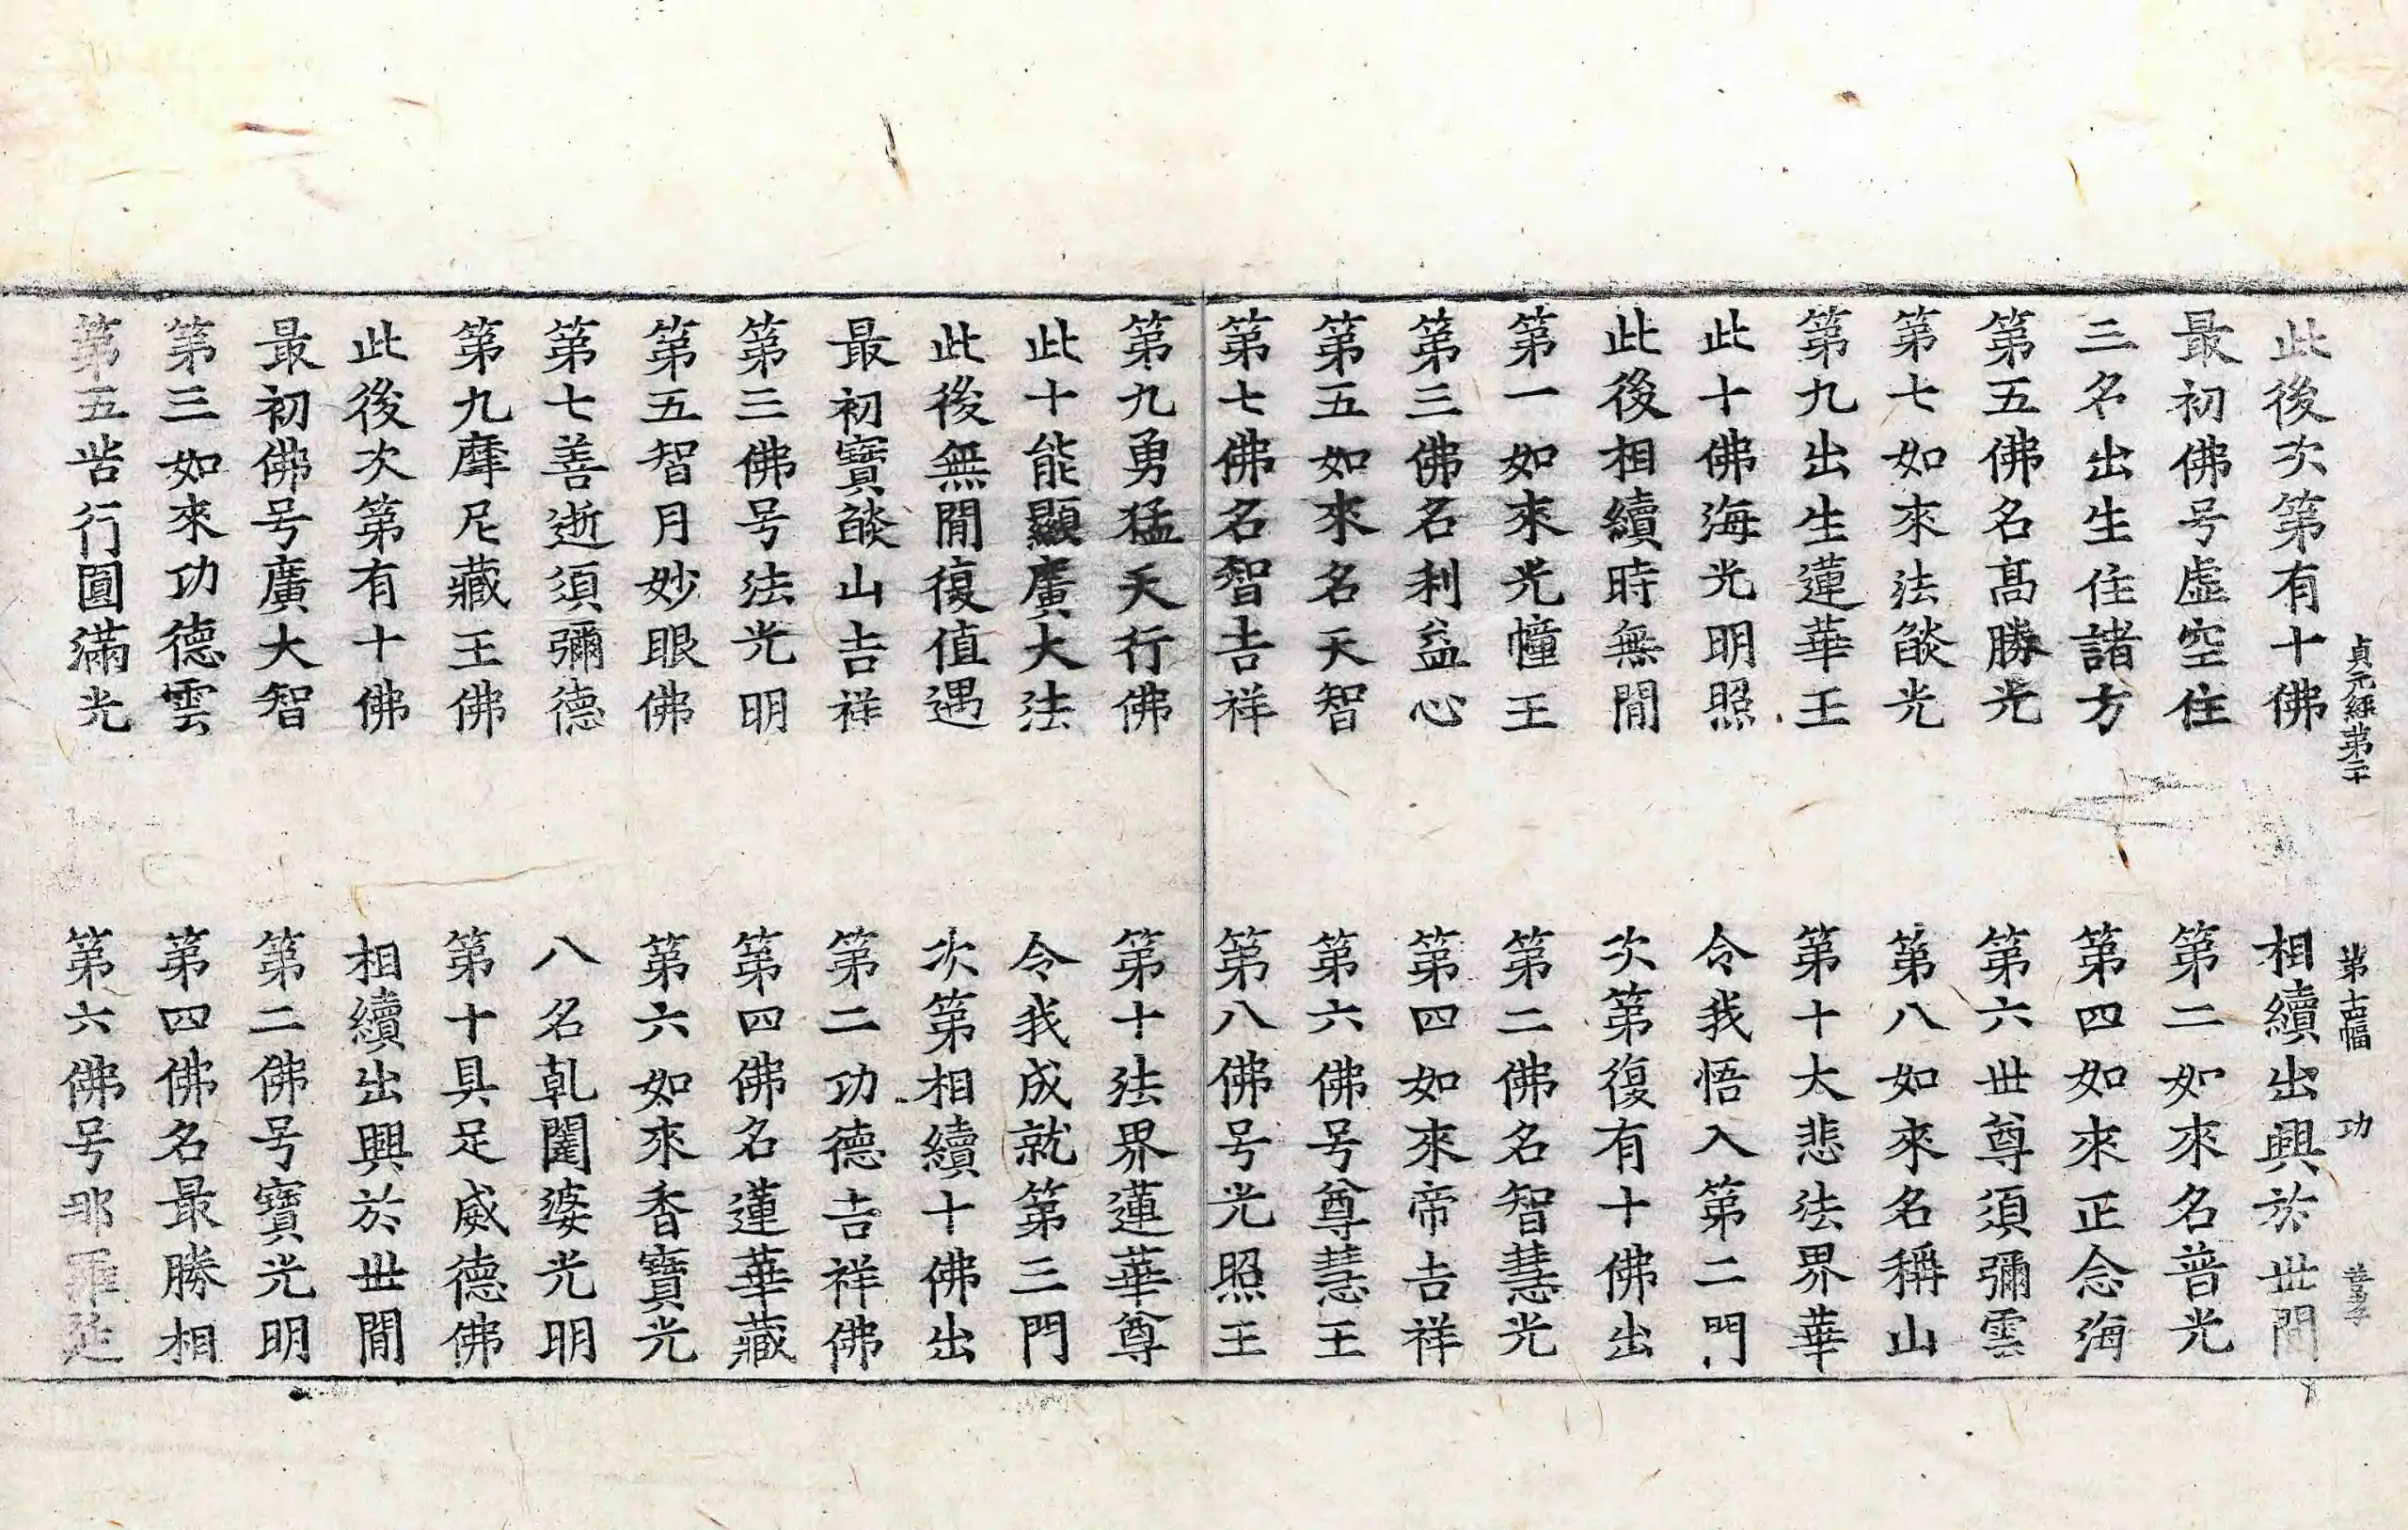 貞元經第二十 第十四幅 功
此後次第有十佛 相續出興於世間
最初佛号虛空住 第二如來名普光
三名出生住諸方 第四如來正念海
第五佛名髙勝光 第六世尊須彌雲
第七如來法燄光 第八如來名稱山
第九出生蓮華王 第十大悲法界華
此十佛海光明照 令我悟入第二門
此後相續時無閒 次第復有十佛出
第一如來光幢王 第二佛名智慧光
第三佛名利益心 第四如來帝吉祥
第五如來名天智 第六佛号尊慧王
第七佛名智吉祥 第八佛号光照王
第九勇猛天行佛 第十法界蓮華尊
此十能顯廣大法 令我成就第三門
此後無閒復值遇 次第相續十佛出
最初寶燄山吉祥 第二功德吉祥佛
第三佛号法光明 第四佛名蓮華藏
第五智月妙眼佛 第六如來香寶光
第七善逝須彌德 八名乹闥婆光明
第九摩尼藏王佛 第十具足威德佛
此後次第有十佛 相續出興於世閒
最初佛号廣大智 第二佛号寶光明
第三如來功德雲 第四佛名最勝相
第五呰行圓滿光 第六佛号那羅延